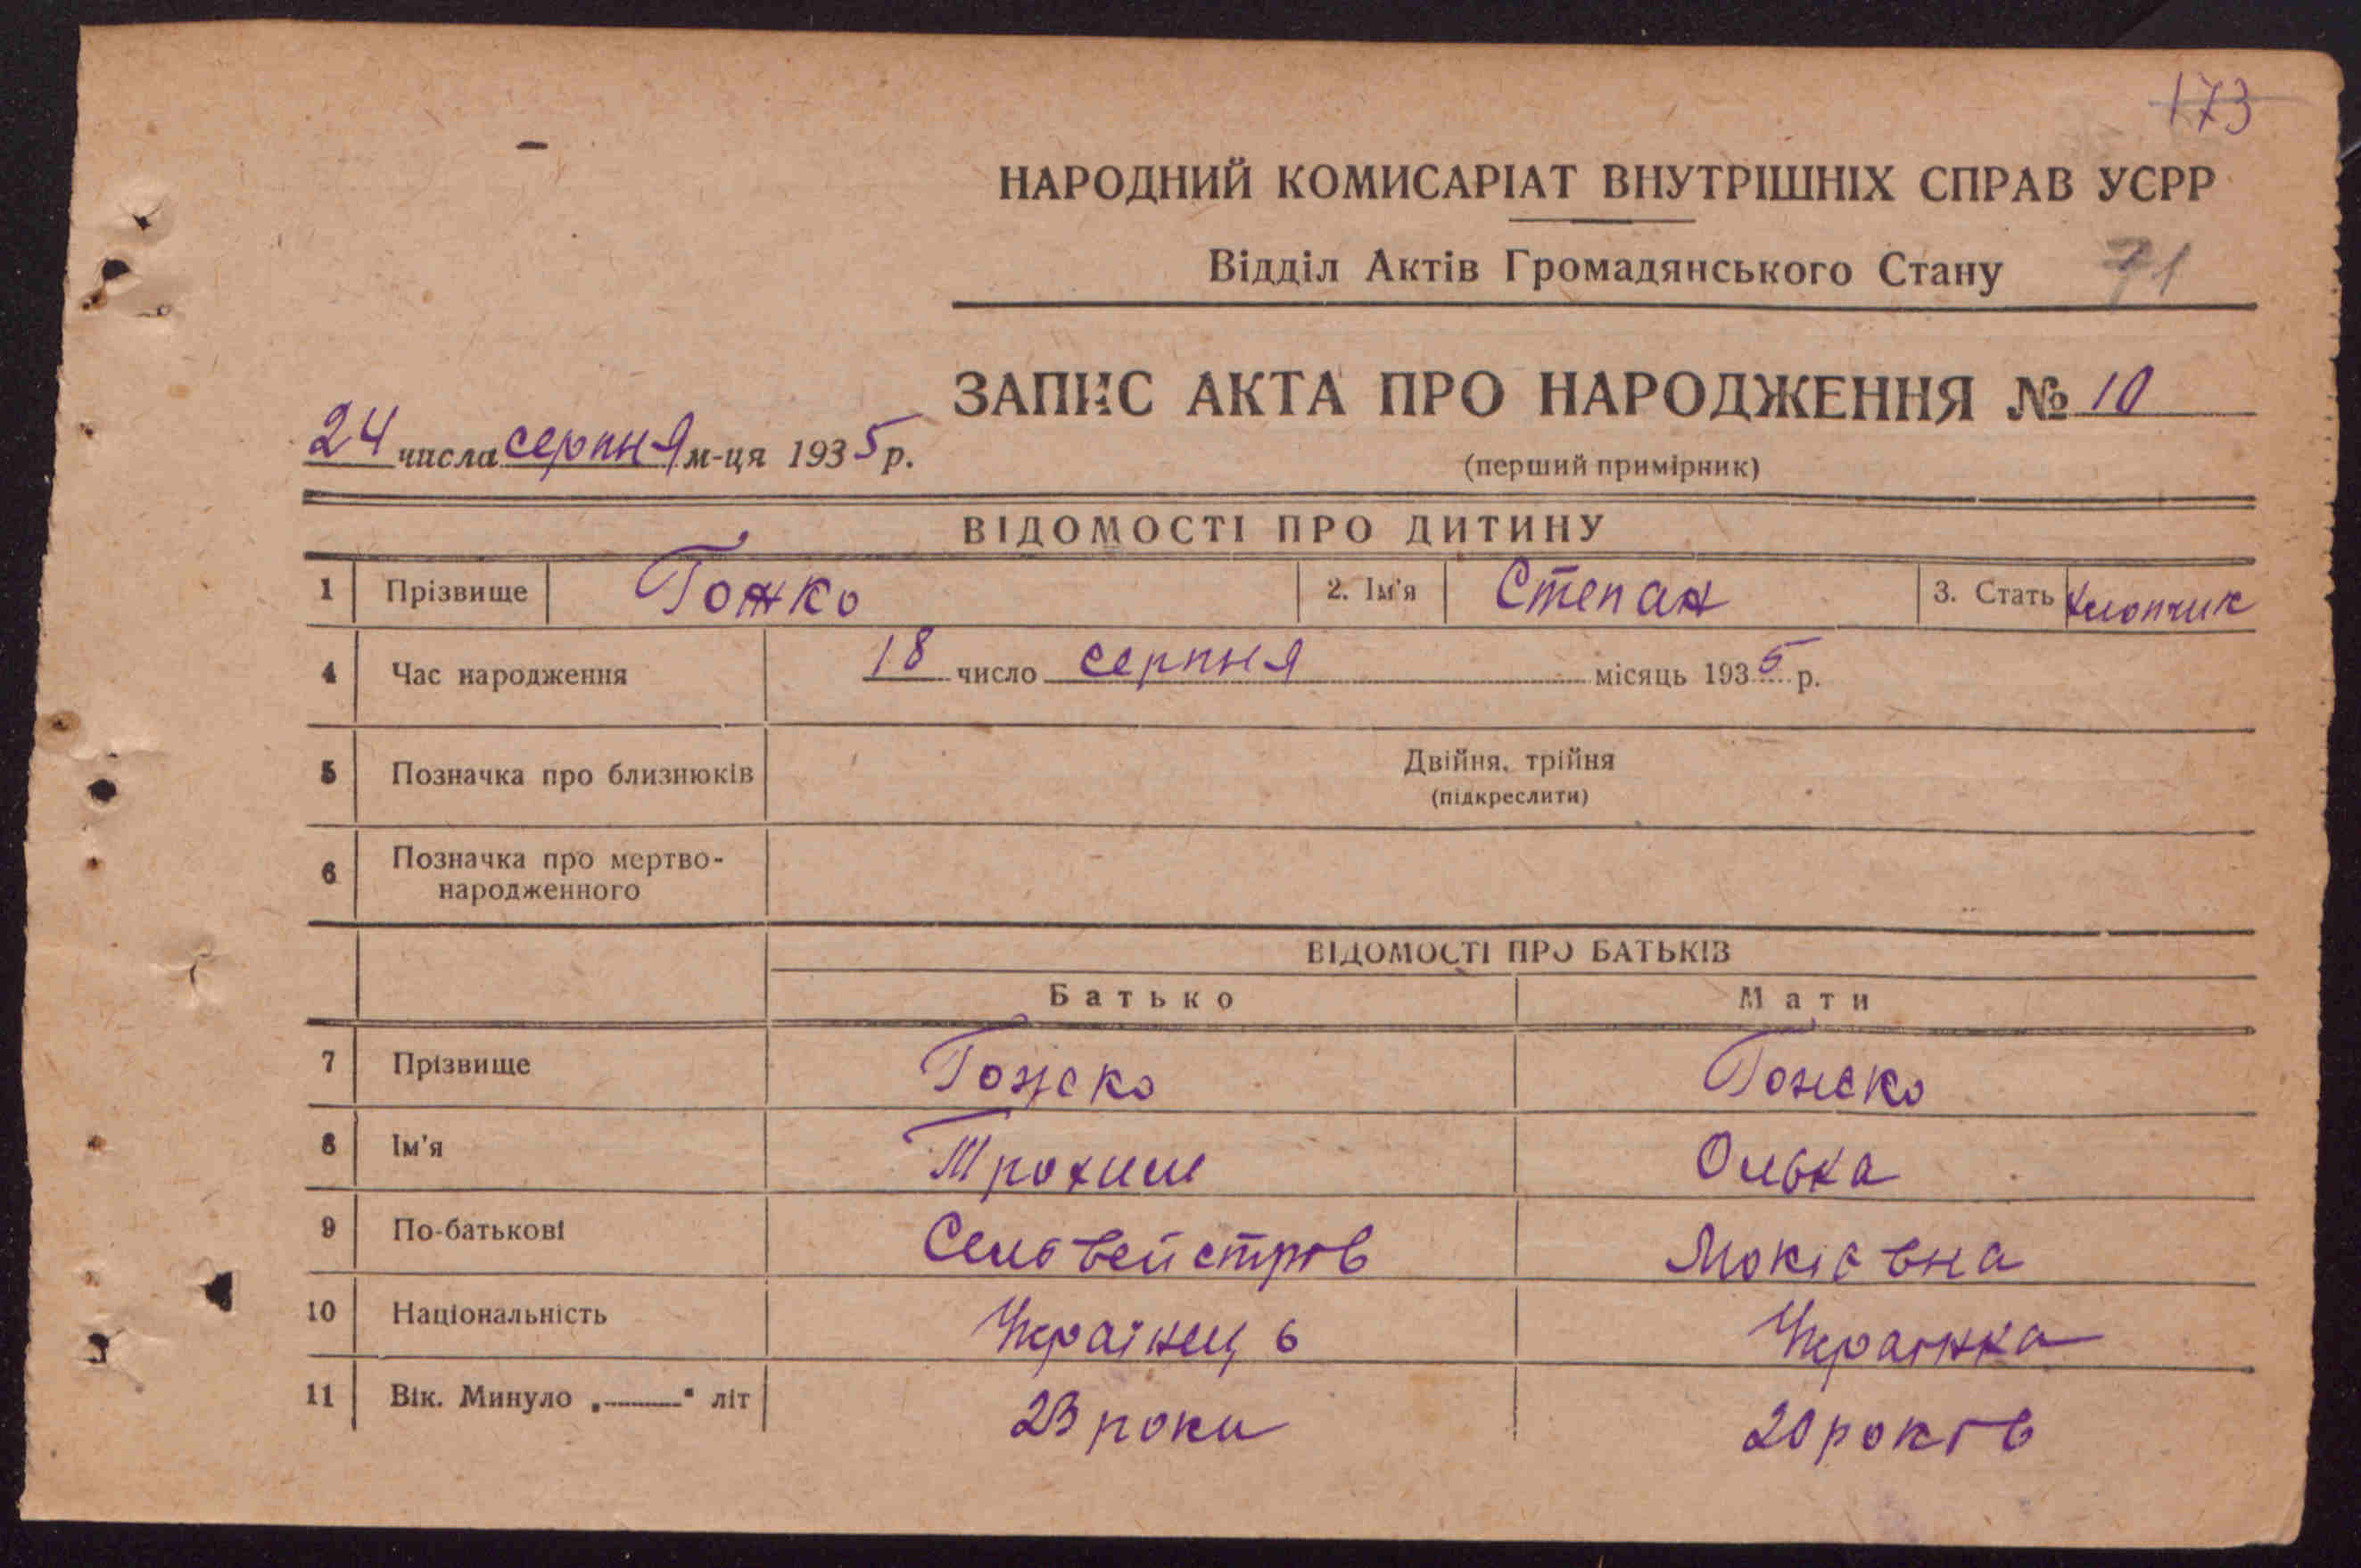 173
НАРОДНИЙ КОМИСАРІАТ ВНУТРІШНІХ СПРАВ УСРР
Відділ Актів Громадянського Стану 71
ЗАПИС АКТА ПРО НАРОДЖЕННЯ № 10
24 числа серпня м-ця 1935 р.
(перший примірник)
ВІДОМОСТІ ПРО ДИТИНУ
1 Прізвище Гожко 2. Ім'я Степан 3. Стать хлопчик
4 Час народження 18 число серпня місяць 1935 р.
5 Позначка про близнюків Двійня, трійня
(підкреслити)
6 Позначка про мертво-
народженного
ВІДОМОСТІ ПРО БАТЬКІВ
Батько Мати
7 Прізвище Гожко Гожко
8 Ім'я Трохим Олька
9 По-батькові Селвейстрів Мокієвна
10 Національність Українець Українка
11 Вік. Минуло „———" літ 23 роки 20 років